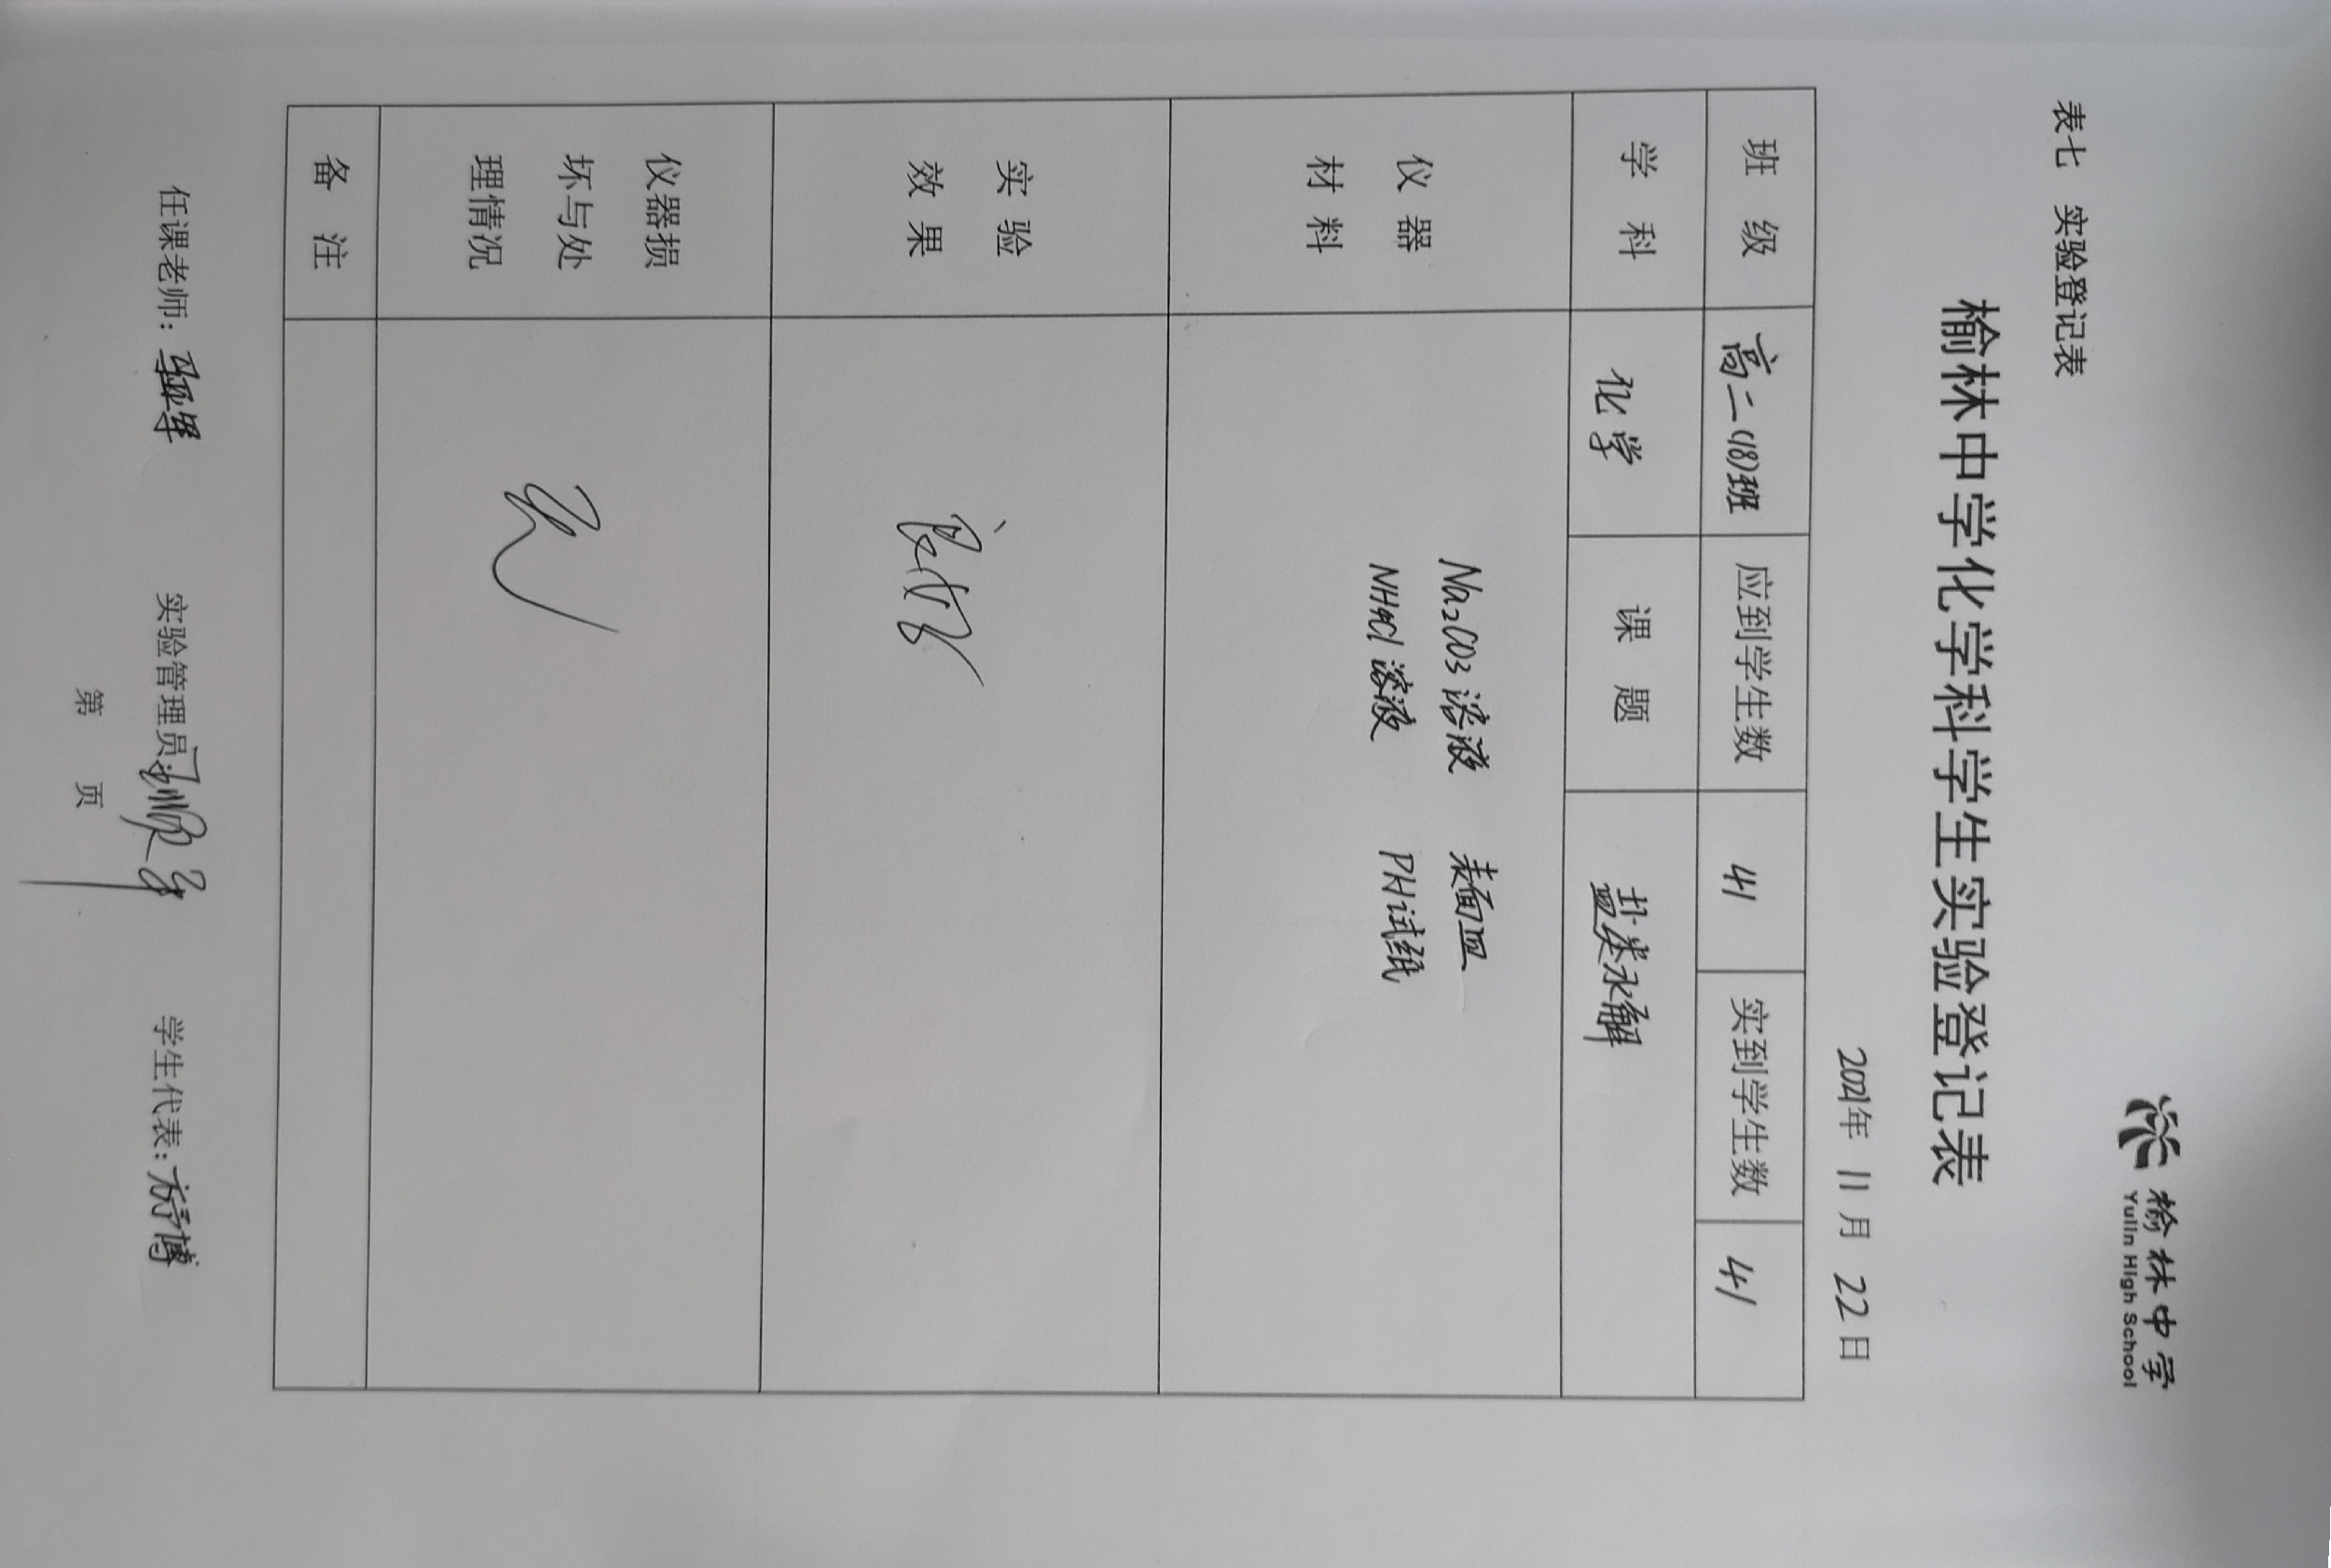 榆林中学
Yulin High School
表七 实验登记表
榆林中学化学科学生实验登记表
2021年 11 月 22 日
班 级 高二(18)班 应到学生数 41 实到学生数 41
学 科 化学 课 题 盐类水解
仪 器
材 料
Na2CO3溶液 表面皿
NH4Cl溶液 PH试纸
实 验
效 果
良好
仪器损
坏与处
理情况
无
备 注
任课老师： 实验管理员： 学生代表：
第 页